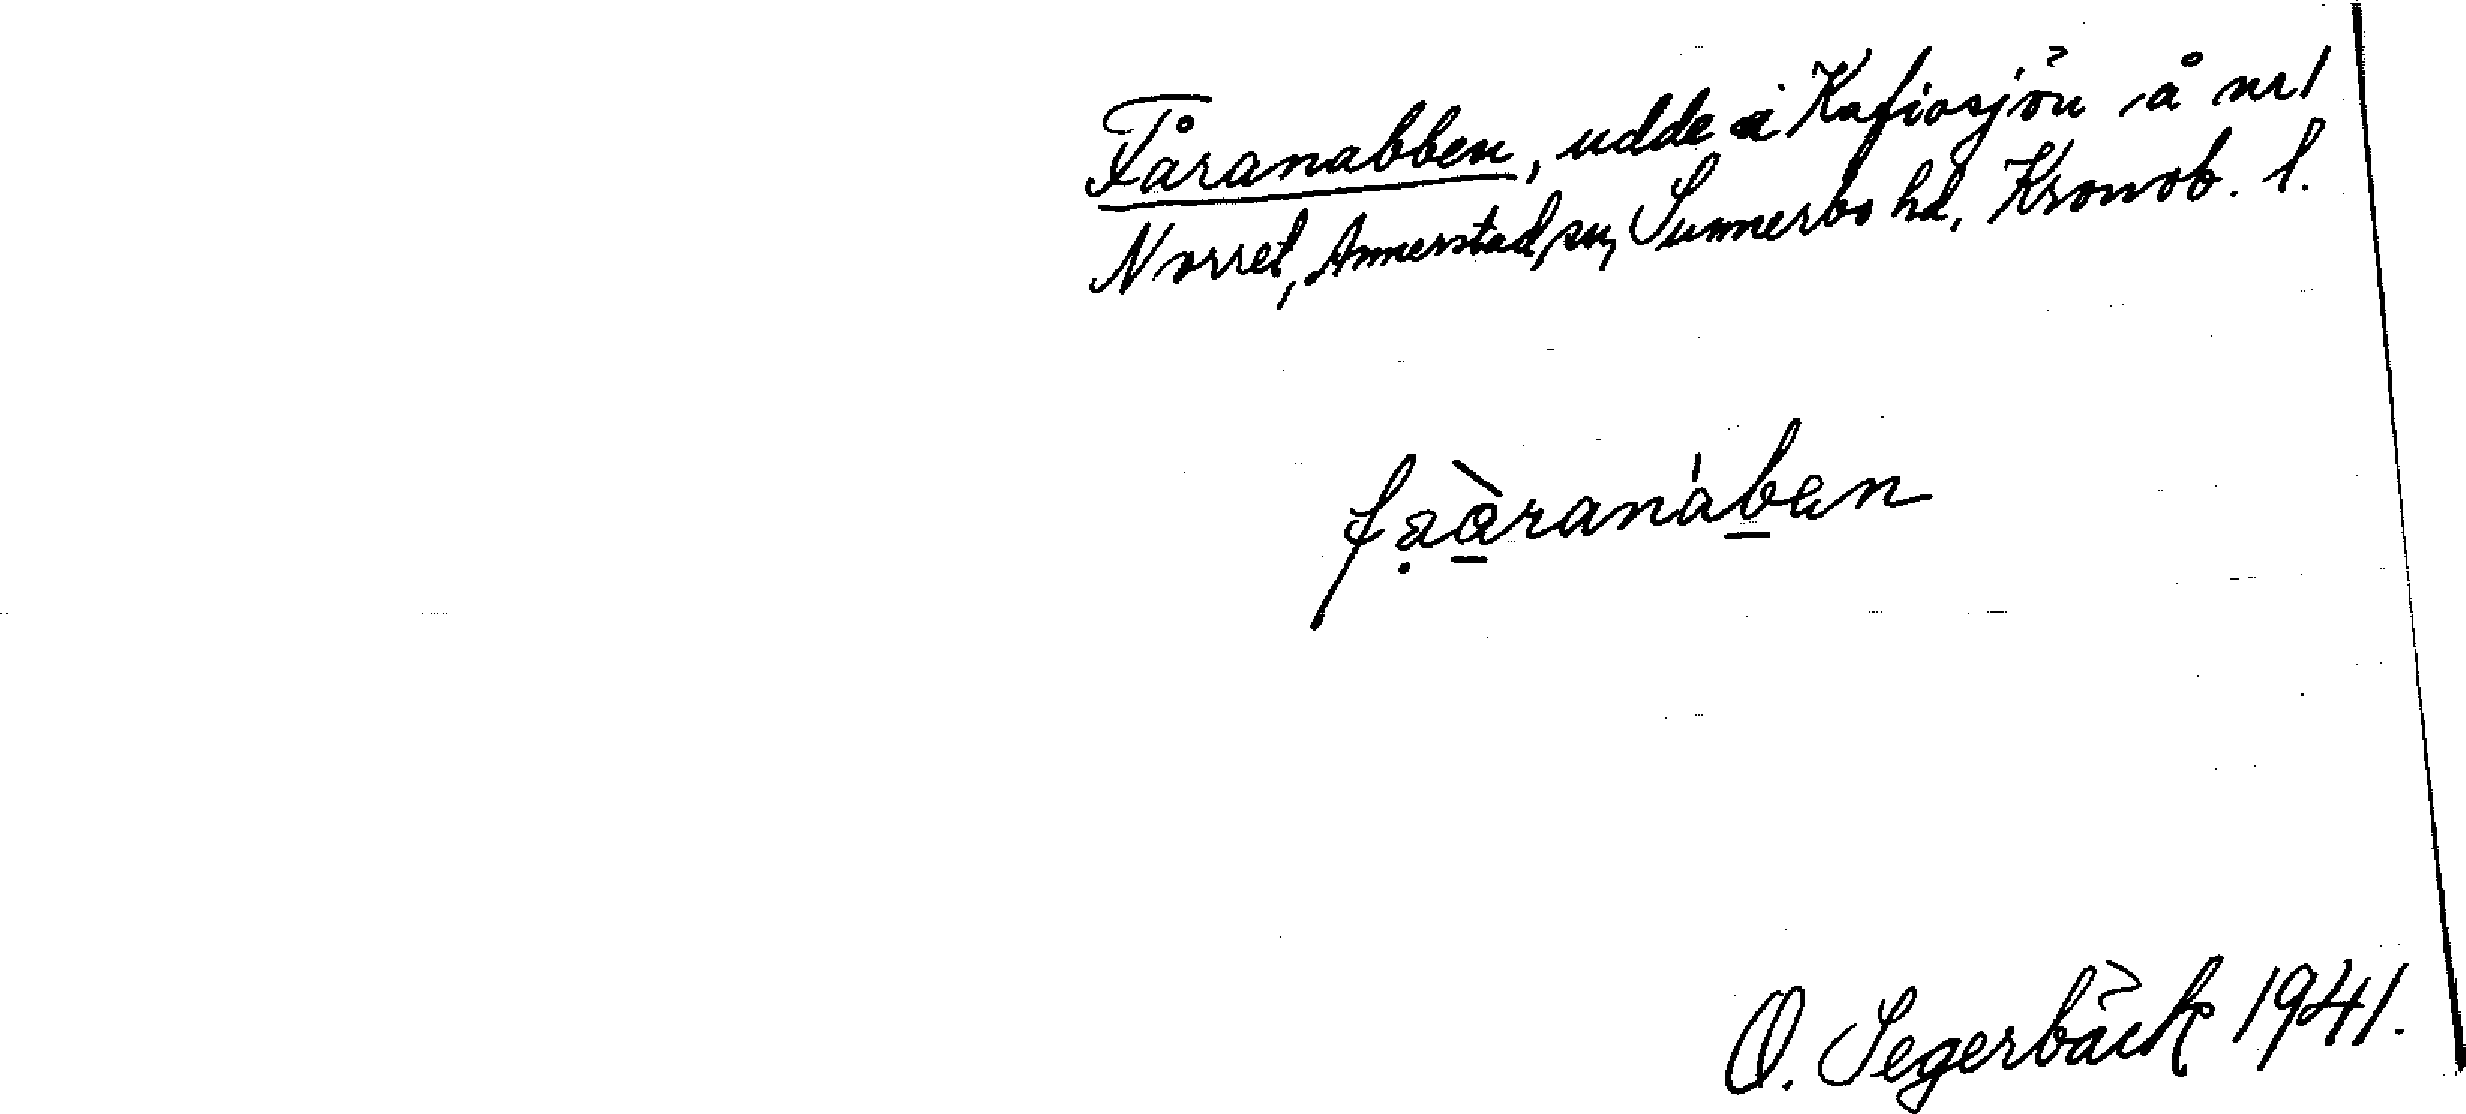 Fåranabben, udde i Kafiosjön å nr 1
Norret, Annerstad sn, Sunnerbo hd, Kronob. l.
fạà̱ranáḇen
O. Segerbäck 1941.